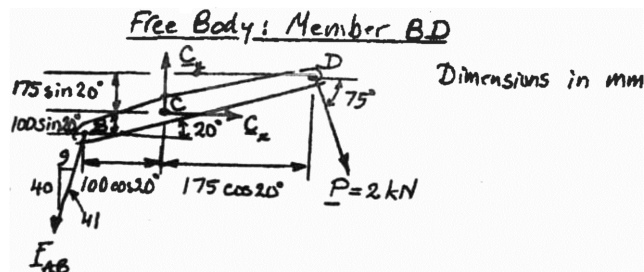 Free Body: Member BD
C_y
D
Dimensions in mm
175 sin 20°
75°
C
100 sin 20°
B
20°
C_x
9
100 cos 20°
175 cos 20°
40
P = 2 kN
41
F_AB